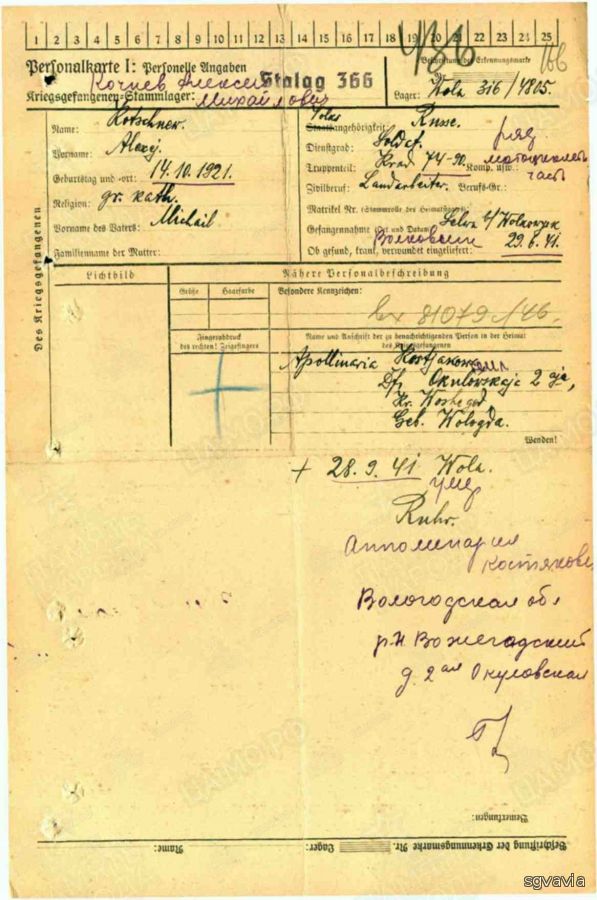 1 2 3 4 5 6 7 8 9 10 11 12 13 14 15 16 17 18 19 20 21 22 23 24 25
Personalkarte I: Personelle Angaben
Beschriftung der Erkennungsmarke
Кочнев Алексей
Михайлович
Kriegsgefangenen-Stammlager: Stalag 366
Lager: Wola 316/4805.
Des Kriegsgefangenen
Name: Kotschnew.
Vorname: Alexej
Geburtstag und -ort: 14.10.1921.
Religion: gr. kath.
Vorname des Vaters: Michail
Familienname der Mutter:
Staatsangehörigkeit: Russe.
Dienstgrad: Soldat. ряд.
Truppenteil: Krad 74-90. Komp. usw.: мотоциклет.
часть
Zivilberuf: Landarbeiter. Berufs-Gr.:
Matrikel Nr. (Stammrolle des Heimatstaates):
Gefangennahme (Ort und Datum): b/Wolkowysk
29.6.41.
Ob gesund, krank, verwundet eingeliefert:
Lichtbild
Nähere Personalbeschreibung
Größe
Haarfarbe
Besondere Kennzeichen:
Fingerabdruck
des rechten! Zeigefingers
Name und Anschrift der zu benachrichtigenden Person in der Heimat
des Kriegsgefangenen
Apollinaria Kostjakowa
Df. Okulowskaja 2 aja,
Kr. Woshegod,
Geb. Wologda.
Wenden!
+ 28.9.41 Wola.
Ruhr.
Апполинария
Костякова
Вологодская обл
р-н Вожегодский
д. 2ая Окуловская
Bemerkungen:
Beschriftung der Erkennungsmarke Nr. Lager: Name:
ЦАМО.РФ
sgvavia